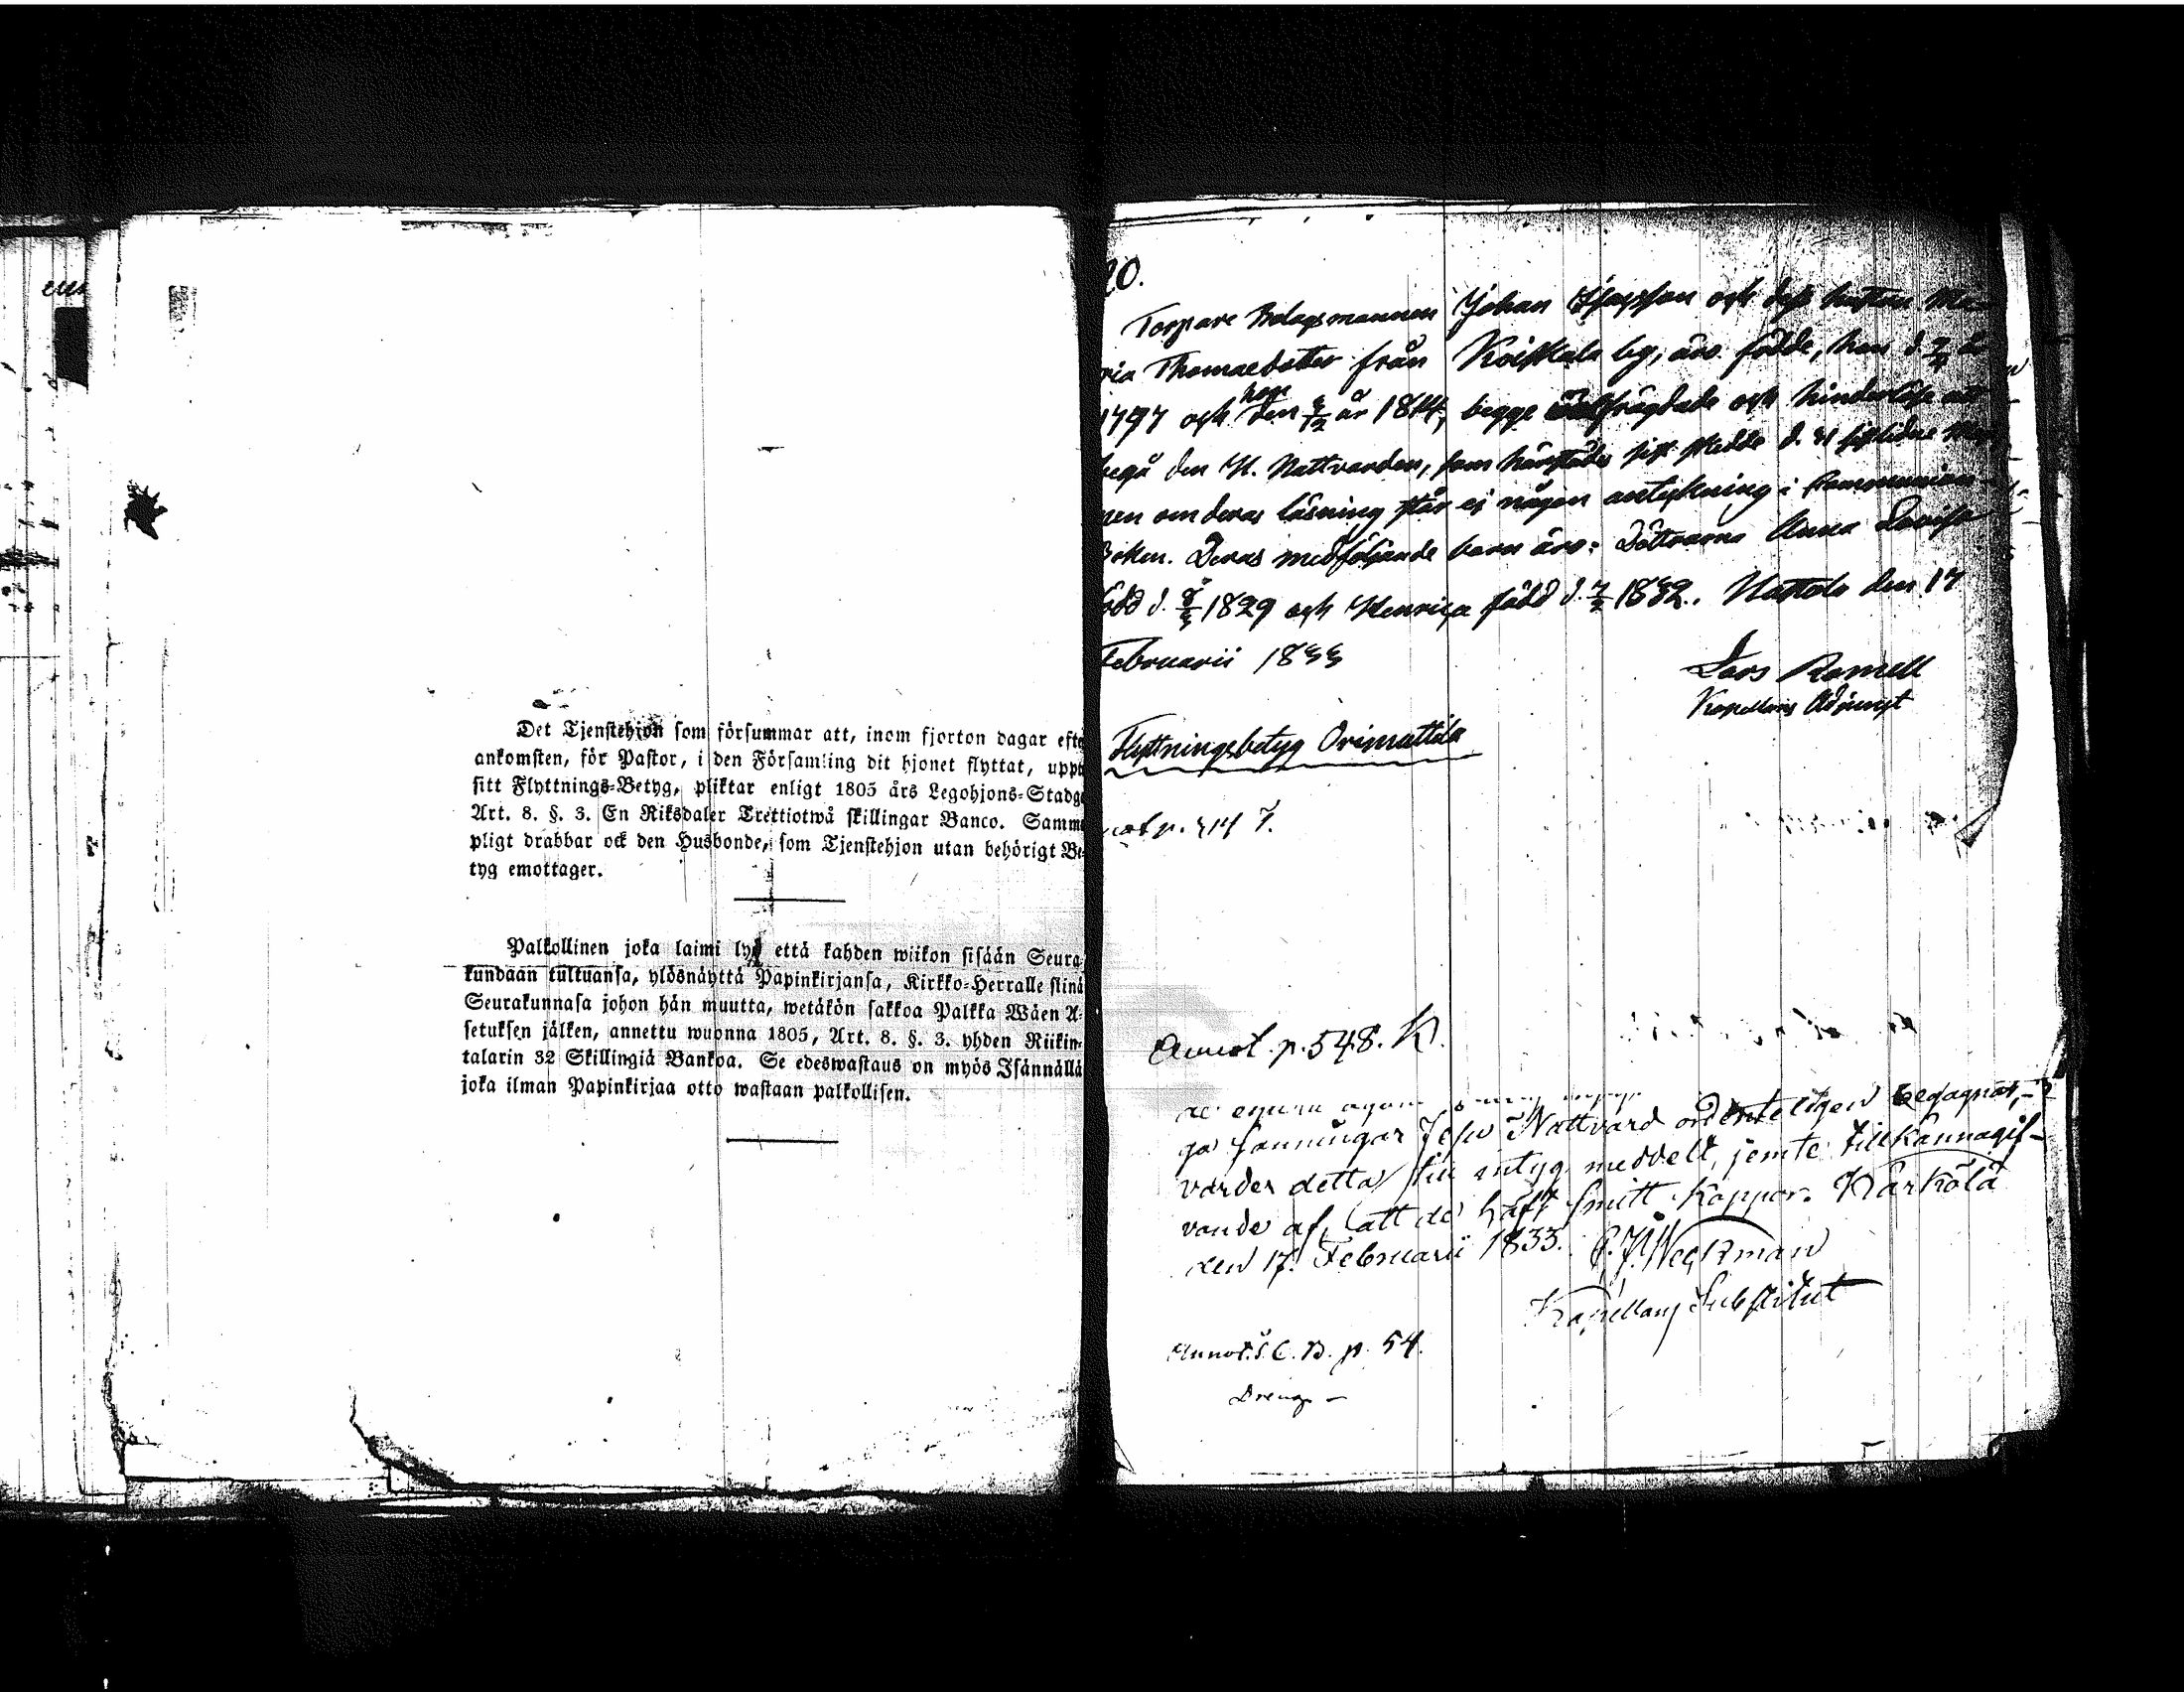 Det Tjenstehjon som försummar att, inom fjorton dagar efte
ankomsten, för Pastor, i den Församling dit hjonet flyttat, uppt
sitt Flyttnings-Betyg, pliktar enligt 1805 års Legohjons-Stadg
Art. 8. §. 3. En Riksdaler Trettiotwå skillingar Banco. Samm
pligt drabbar ock den Husbonde, som Tjenstehjon utan behörigt Be-
tyg emottager.
Palkollinen joka laimi lyö että kahden wiikon sisään Seura-
kundaan tultuansa, ylösnäyttä Papinkirjansa, Kirkko-Herralle siinä
Seurakunnasa johon hän muutta, wetäkön sakkoa Palkka Wäen A-
setuksen jälken, annettu wuonna 1805, Art. 8. §. 3. yhden Riikin-
talarin 32 Skillingiä Bankoa. Se edeswastaus on myös Isännällä
joka ilman Papinkirjaa otto wastaan palkollisen.
20.
Torpare Bolagsmannen Johan och dess hustru Ma-
ria Thomaedotter från Koiskala by, äro födde, han d.
1797 och hon den år 1814, begge frägdade och hinderlöse att
begå den H. Nattvarden, som härstädes sist skedde d. sistlidne
men om deras läsning står ej någon antekning i Communion-
Boken. Deras medföljande barn äro: Döttrarna Anna Lovisa
född d. 1829 och Henrica född d. 1832. Nastola den 17
Februarii 1833
Lars Romell
Kapellans Adjunct
Flyttningsbetyg Orimattila
Annot. p. 548. K.
ga sanningar Jesu Nattvard ordenteligen begagnat,
varder detta till intyg meddelt, jemte tillkännagif-
vande af, att de haft smitt-koppor. Kärkölä
den 17. Februarii 1833. Weckman
Kapellans Substitut
Annot. S. C. B. p. 54.
Dreng -